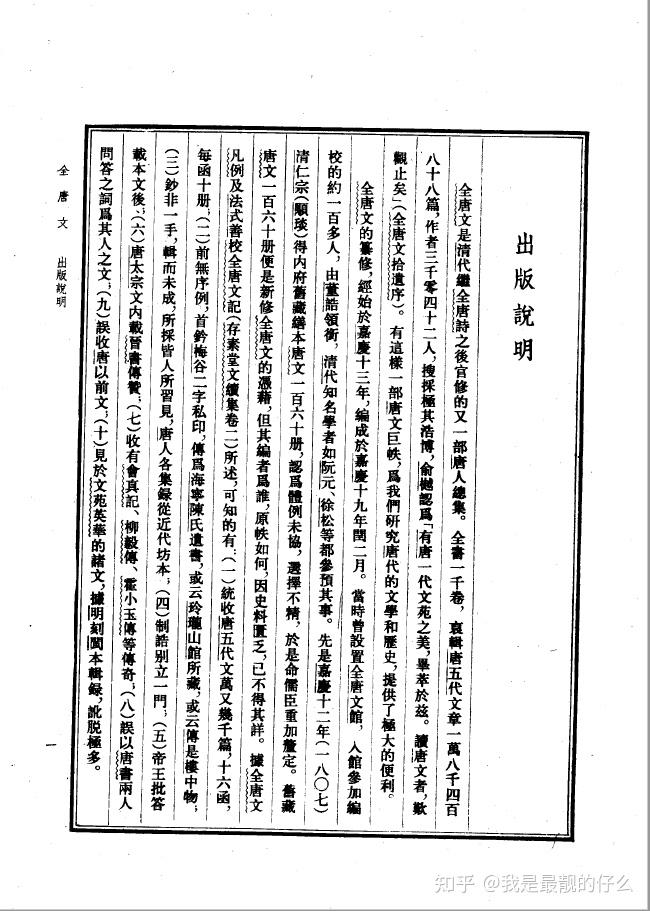 出版說明
全唐文是清代繼全唐詩之後官修的又一部唐人總集。全書一千卷，裒輯唐五代文章一萬八千四百
八十八篇，作者三千零四十二人，搜採極其浩博，俞樾認爲「有唐一代文苑之美，畢萃於兹。讀唐文者，歎
觀止矣」（全唐文拾遺序）。有這樣一部唐文巨帙，爲我們研究唐代的文學和歷史，提供了極大的便利。
全唐文的纂修，經始於嘉慶十三年，編成於嘉慶十九年閏二月。當時曾設置全唐文館，入館參加編
校的約一百多人，由董誥領銜，清代知名學者如阮元、徐松等都參預其事。先是嘉慶十二年（一八〇七）
清仁宗（顒琰）得内府舊藏繕本唐文一百六十册，認爲體例未協，選擇不精，於是命儒臣重加釐定。舊藏
唐文一百六十册便是新修全唐文的憑藉，但其編者爲誰，原帙如何，因史料匱乏，已不得其詳。據全唐文
凡例及法式善校全唐文記（存素堂文續集卷二）所述，可知的有：（一）統收唐五代文萬又幾千篇，十六函，
每函十册；（二）前無序例，首鈐梅谷二字私印，傳爲海寧陳氏遺書，或云玲瓏山館所藏，或云傳是樓中物；
（三）鈔非一手，輯而未成，所採皆人所習見，唐人各集録從近代坊本；（四）制誥别立一門；（五）帝王批答
載本文後；（六）唐太宗文内載晉書傳贊；（七）收有會真記、柳毅傳、霍小玉傳等傳奇；（八）誤以唐書兩人
問答之詞爲其人之文；（九）誤收唐以前文；（十）見於文苑英華的諸文，據明刻閩本輯録，訛脱極多。
全唐文 出版說明
一
知乎 @我是最靓的仔么